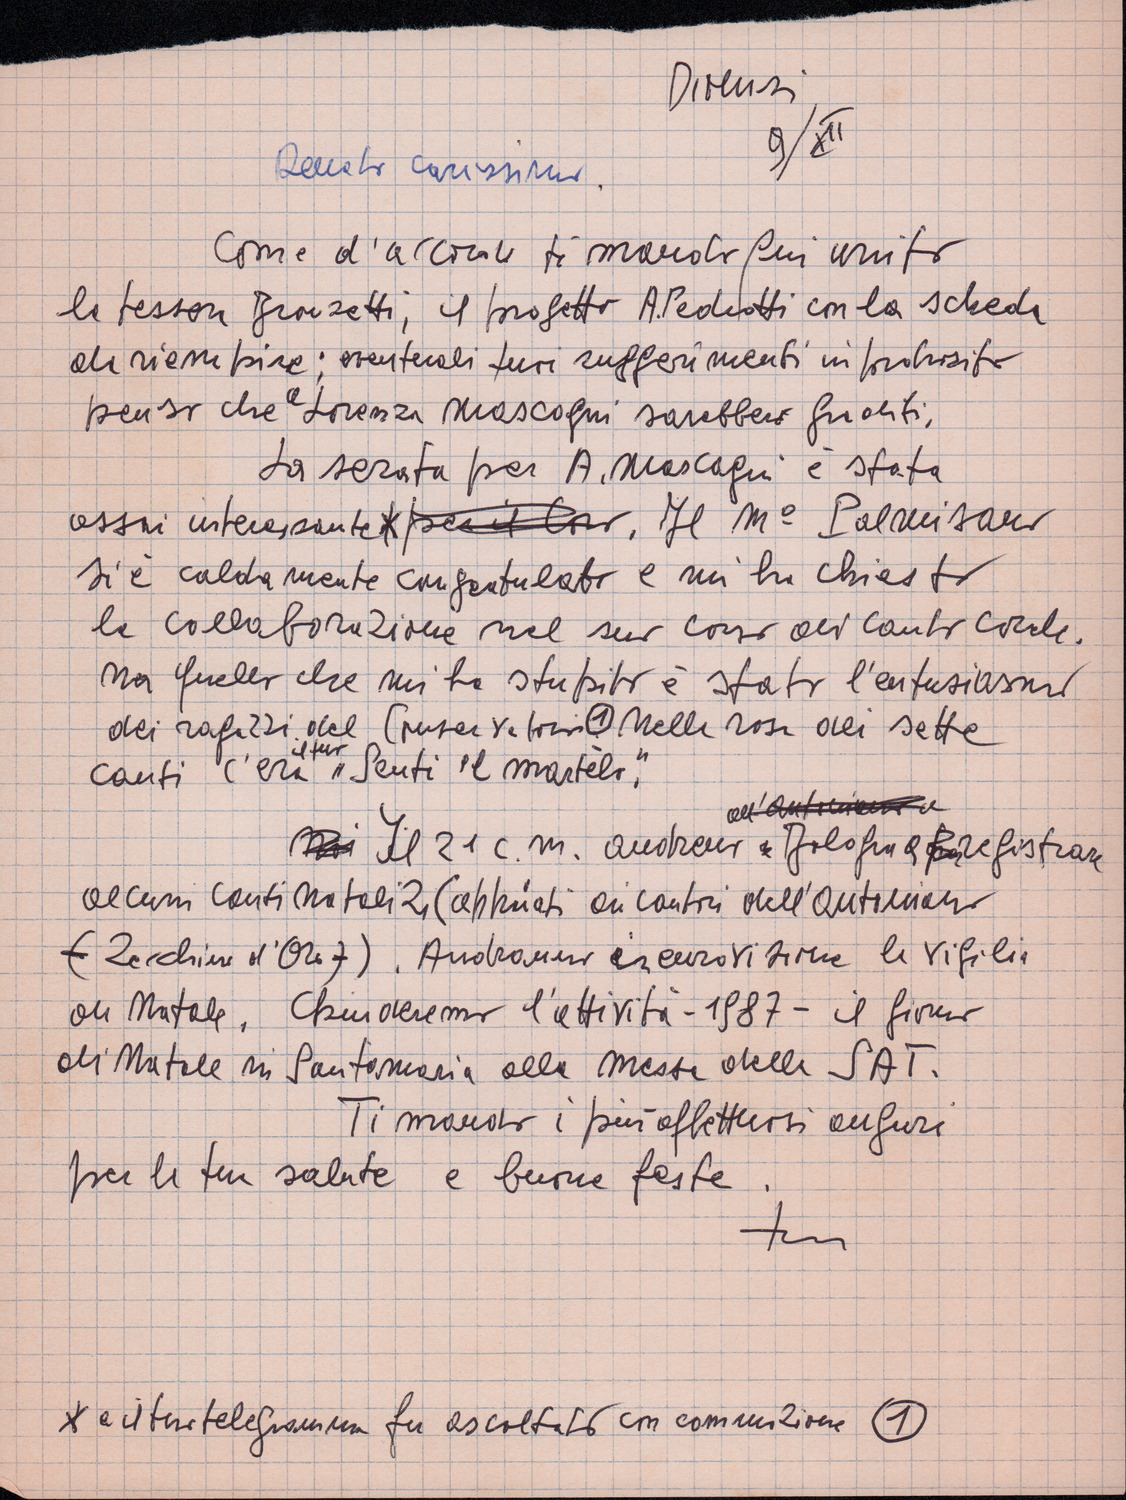 9/XII
Renato carissimo.
Come d'accordo ti mando qui unito
la tessera Bronzetti, il progetto A.Pedrotti con la scheda
da riempire; eventuali tuoi suggerimenti in proposito
penso che a Lorenza Mascagni sarebbero graditi.
La serata per A. Mascagni è stata
assai interessante * per il Coro. Il Mº Palmisano
si è caldamente congratulato e mi ha chiesto
la collaborazione nel suo corso di canto corale.
Ma quello che mi ha stupito è stato l'entusiasmo
dei ragazzi del Conservatorio ① Nella rosa dei sette
canti c'era il tuo "Senti 'l martèlo".
all'Antoniano
Noi Il 21 c.m. andremo a Bologna a registrare
alcuni canti Natalizi (abbinati ai cantori dell'Antoniano
(Zecchino d'Oro)). Andranno in eurovisione la vigilia
di Natale. Chiuderemo l'attività - 1987 - il giorno
di Natale in Santamaria alla messa della SAT.
Ti mando i più affettuosi auguri
per la tua salute e buone feste.
* e il tuo telegramma fu ascoltato con commozione ①